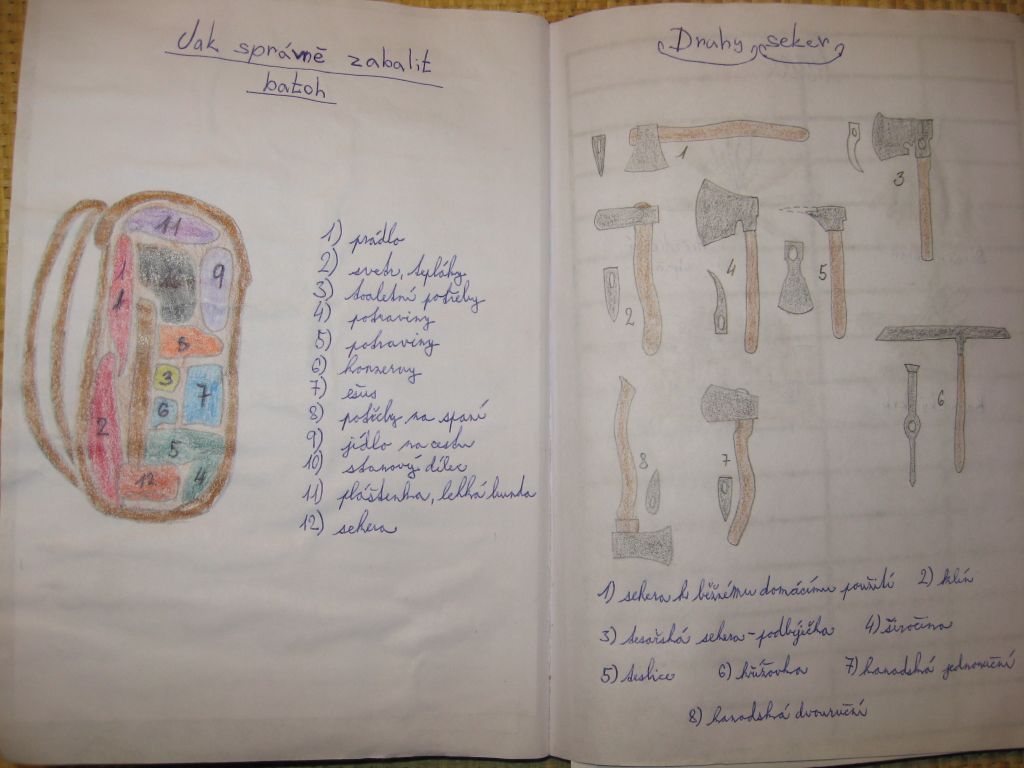 Jak správně zabalit
batoh
11
1
1
10
9
8
3
7
6
2
5
12
4
1) prádlo
2) svetr, tepláky
3) toaletní potřeby
4) potraviny
5) potraviny
6) konzervy
7) ešus
8) potřeby na spaní
9) jídlo na cestu
10) stanový dílec
11) pláštenka, lehká bunda
12) sekera
Druhy seker
1
3
2
4
5
6
8
7
1) sekera k běžnému domácímu použití 2) klín
3) tesařská sekera - podbíječka 4) širočina
5) teslice 6) křížovka 7) kanadská jednoruční
8) kanadská dvouruční